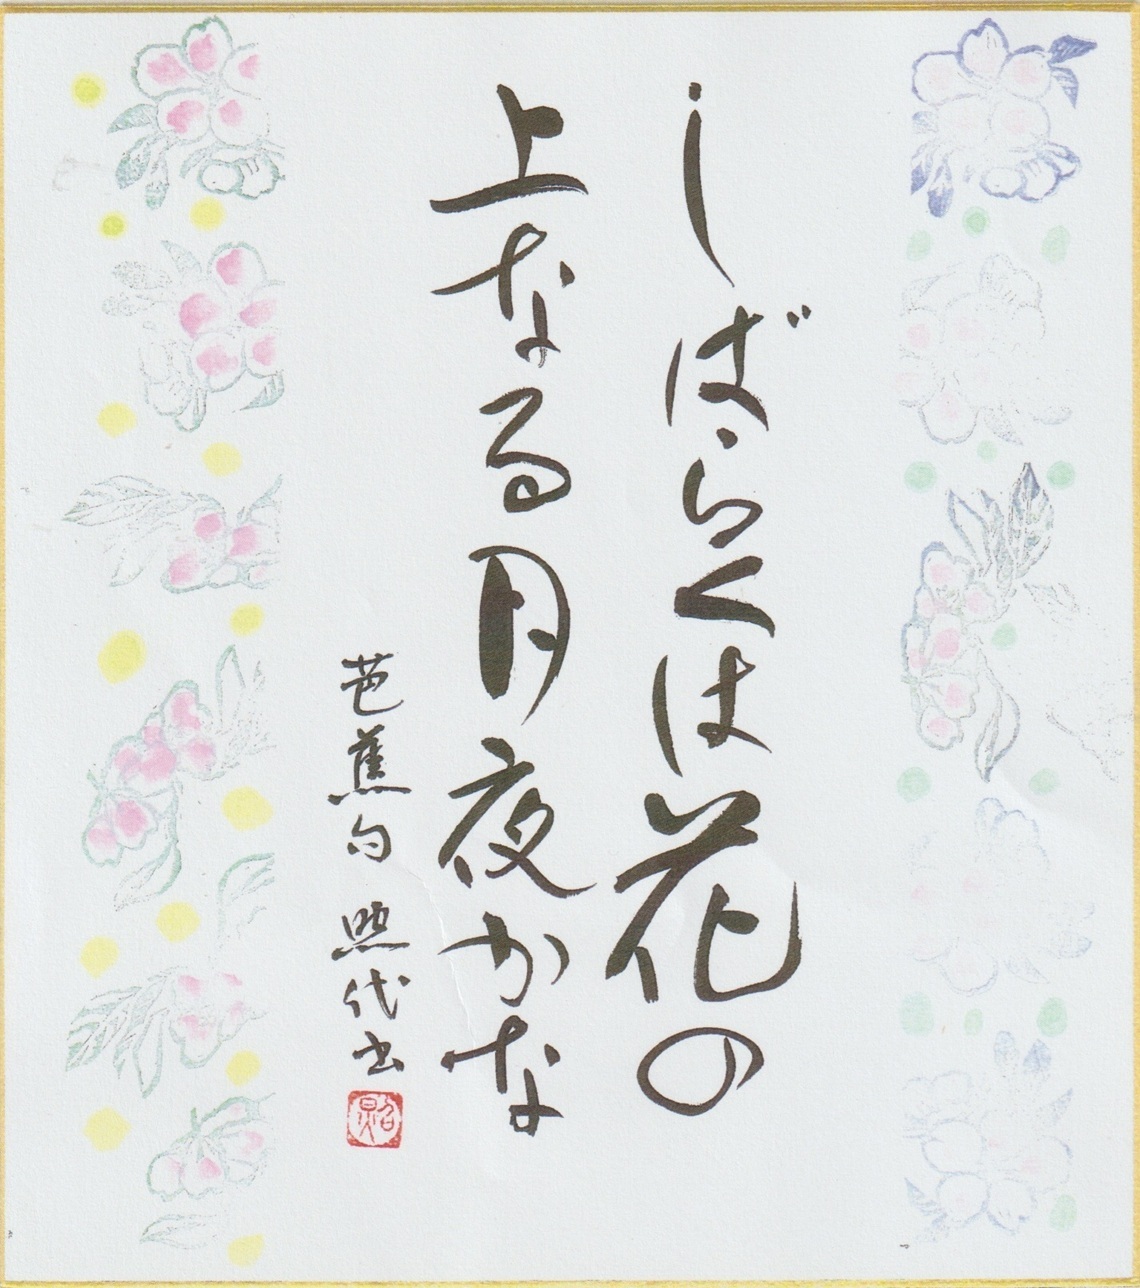 しばらくは花の
上なる月夜かな
芭蕉句 照代書